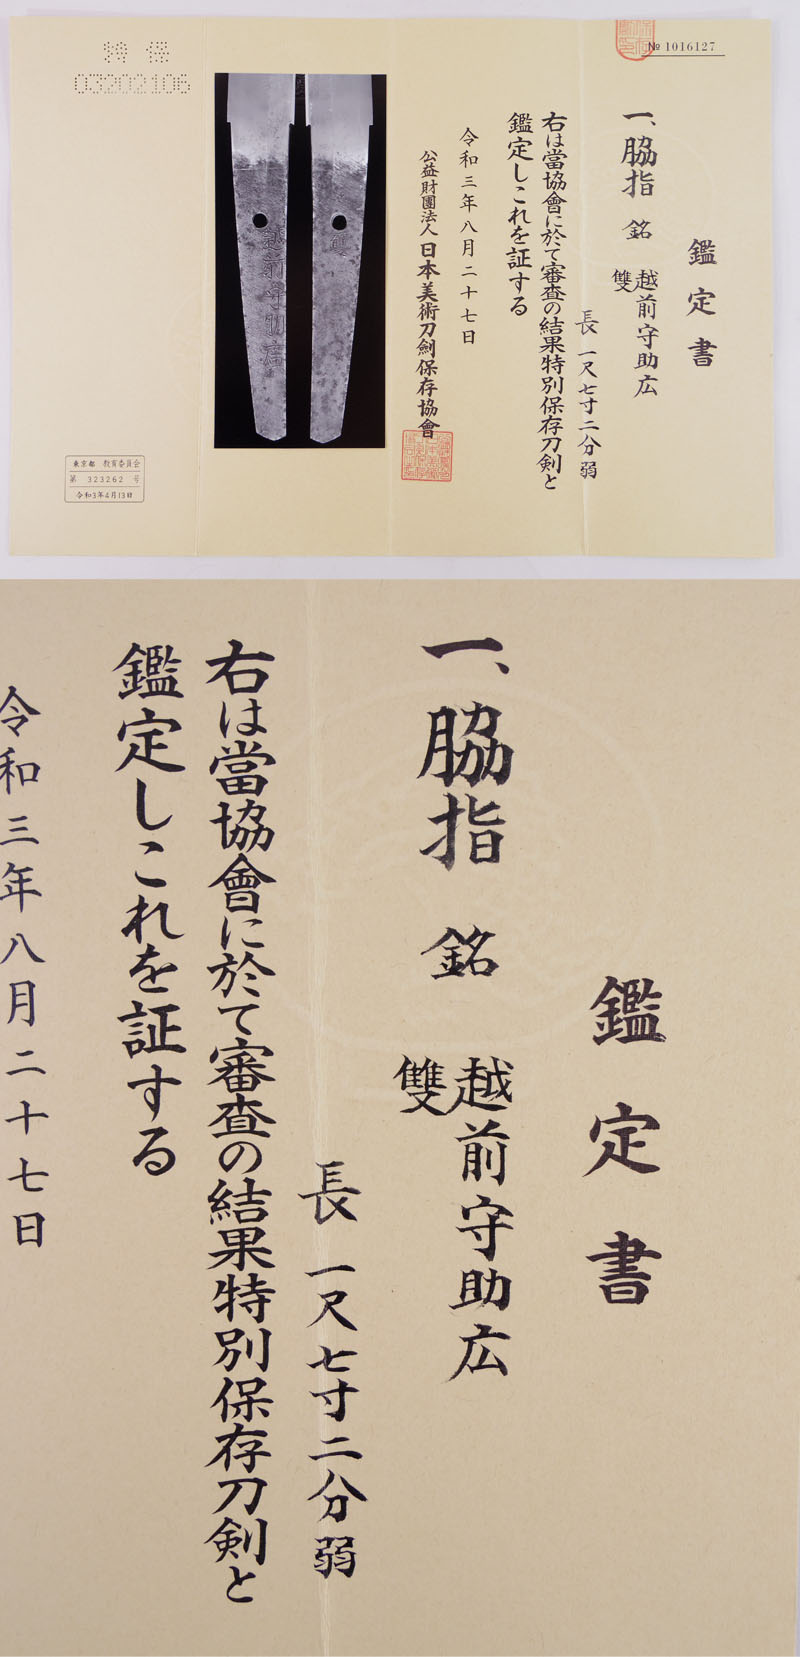 № 1016127
鑑定書
一、脇指 銘 越前守助広
雙
長 一尺七寸二分弱
右は當協會に於て審査の結果特別保存刀剣と
鑑定しこれを証する
令和三年八月二十七日
公益財團法人 日本美術刀剣保存協會
雙
越前守助廣
特 保
03202106
東京都 教育委員会
第 323262 号
令和3年4月13日
鑑定書
一、脇指 銘 越前守助広
雙
長 一尺七寸二分弱
右は當協會に於て審査の結果特別保存刀剣と
鑑定しこれを証する
令和三年八月二十七日